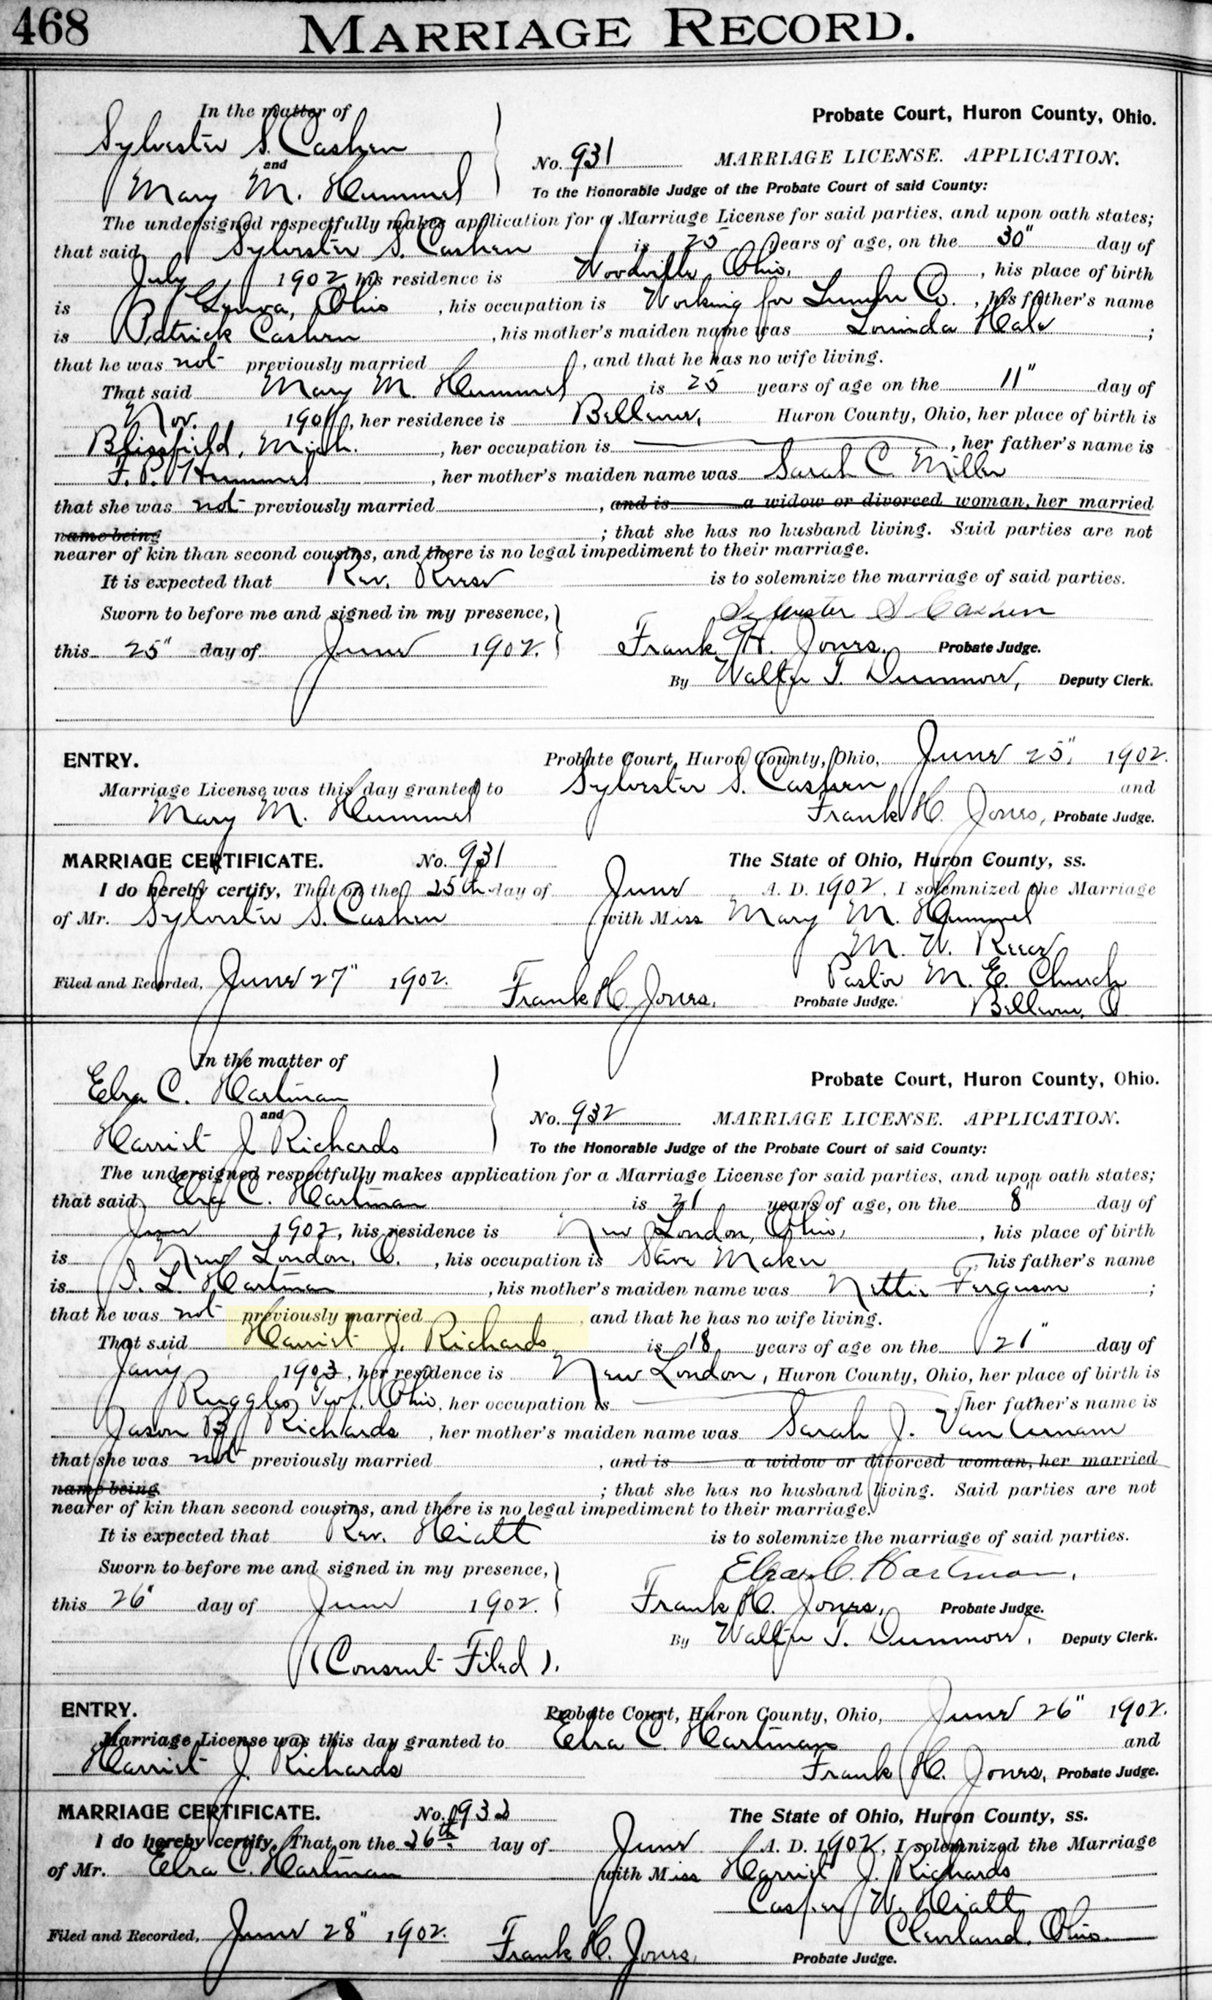 468 MARRIAGE RECORD.
In the matter of
Sylvester S. Cashen
and
Mary M. Hummel
Probate Court, Huron County, Ohio.
No. 931 MARRIAGE LICENSE. APPLICATION.
To the Honorable Judge of the Probate Court of said County:
The undersigned respectfully makes application for a Marriage License for said parties, and upon oath states;
that said Sylvester S. Cashen is 25 years of age, on the 30" day of
July 1902, his residence is Woodville, Ohio, , his place of birth
is Genoa, Ohio , his occupation is Working for Lumber Co. , his father's name
is Patrick Cashen , his mother's maiden name was Lorinda Hale ;
that he was not previously married , and that he has no wife living.
That said Mary M. Hummel is 25 years of age on the 11" day of
Nov. 1901, her residence is Bellevue, Huron County, Ohio, her place of birth is
Blissfield, Mich. , her occupation is , her father's name is
F. P. Hummel , her mother's maiden name was Sarah C. Miller
that she was not previously married , and is a widow or divorced woman, her married
name being ; that she has no husband living. Said parties are not
nearer of kin than second cousins, and there is no legal impediment to their marriage.
It is expected that Rev. Reese is to solemnize the marriage of said parties.
Sworn to before me and signed in my presence, Sylvester S Cashen
this 25" day of June 1902. Frank H. Jones, Probate Judge.
By Walter T. Dunmore, Deputy Clerk.
ENTRY. Probate Court, Huron County, Ohio, June 25", 1902.
Marriage License was this day granted to Sylvester S. Cashen and
Mary M. Hummel Frank H. Jones, Probate Judge.
MARRIAGE CERTIFICATE. No. 931 The State of Ohio, Huron County, ss.
I do hereby certify, That on the 25th day of June A. D. 1902, I solemnized the Marriage
of Mr. Sylvester S. Cashen with Miss Mary M. Hummel
M. W. Reece
Pastor M. E. Church
Filed and Recorded, June 27" 1902. Frank H. Jones, Probate Judge. Bellevue, O
In the matter of
Elza C. Hartman
and
Harriet J. Richards
Probate Court, Huron County, Ohio.
No. 932 MARRIAGE LICENSE. APPLICATION.
To the Honorable Judge of the Probate Court of said County:
The undersigned respectfully makes application for a Marriage License for said parties, and upon oath states;
that said Elza C. Hartman is 21 years of age, on the 8" day of
June 1902, his residence is New London, Ohio, , his place of birth
is New London, O. , his occupation is Maker , his father's name
is L. Hartman , his mother's maiden name was Nettie Ferguson ;
that he was not previously married and that he has no wife living.
That said Harriet J. Richards is 18 years of age on the 21" day of
Jany 1903, her residence is New London, Huron County, Ohio, her place of birth is
Ruggles Twp. Ohio, her occupation is , her father's name is
Jason B. Richards , her mother's maiden name was Sarah J. Van
that she was not previously married , and is a widow or divorced woman, her married
name being ; that she has no husband living. Said parties are not
nearer of kin than second cousins, and there is no legal impediment to their marriage.
It is expected that Rev. Hiatt is to solemnize the marriage of said parties.
Sworn to before me and signed in my presence, Elza C. Hartman.
this 26" day of June 1902. Frank H. Jones, Probate Judge.
By Walter T. Dunmore, Deputy Clerk.
(Consent Filed).
ENTRY. Probate Court, Huron County, Ohio, June 26" 1902.
Marriage License was this day granted to Elza C. Hartman and
Harriet J. Richards Frank H. Jones, Probate Judge.
MARRIAGE CERTIFICATE. No. 932 The State of Ohio, Huron County, ss.
I do hereby certify, That on the 26th day of June A. D. 1902, I solemnized the Marriage
of Mr. Elza C. Hartman with Miss Harriet J. Richards
Casper W. Hiatt
Cleveland, Ohio.
Filed and Recorded, June 28" 1902. Frank H. Jones, Probate Judge.